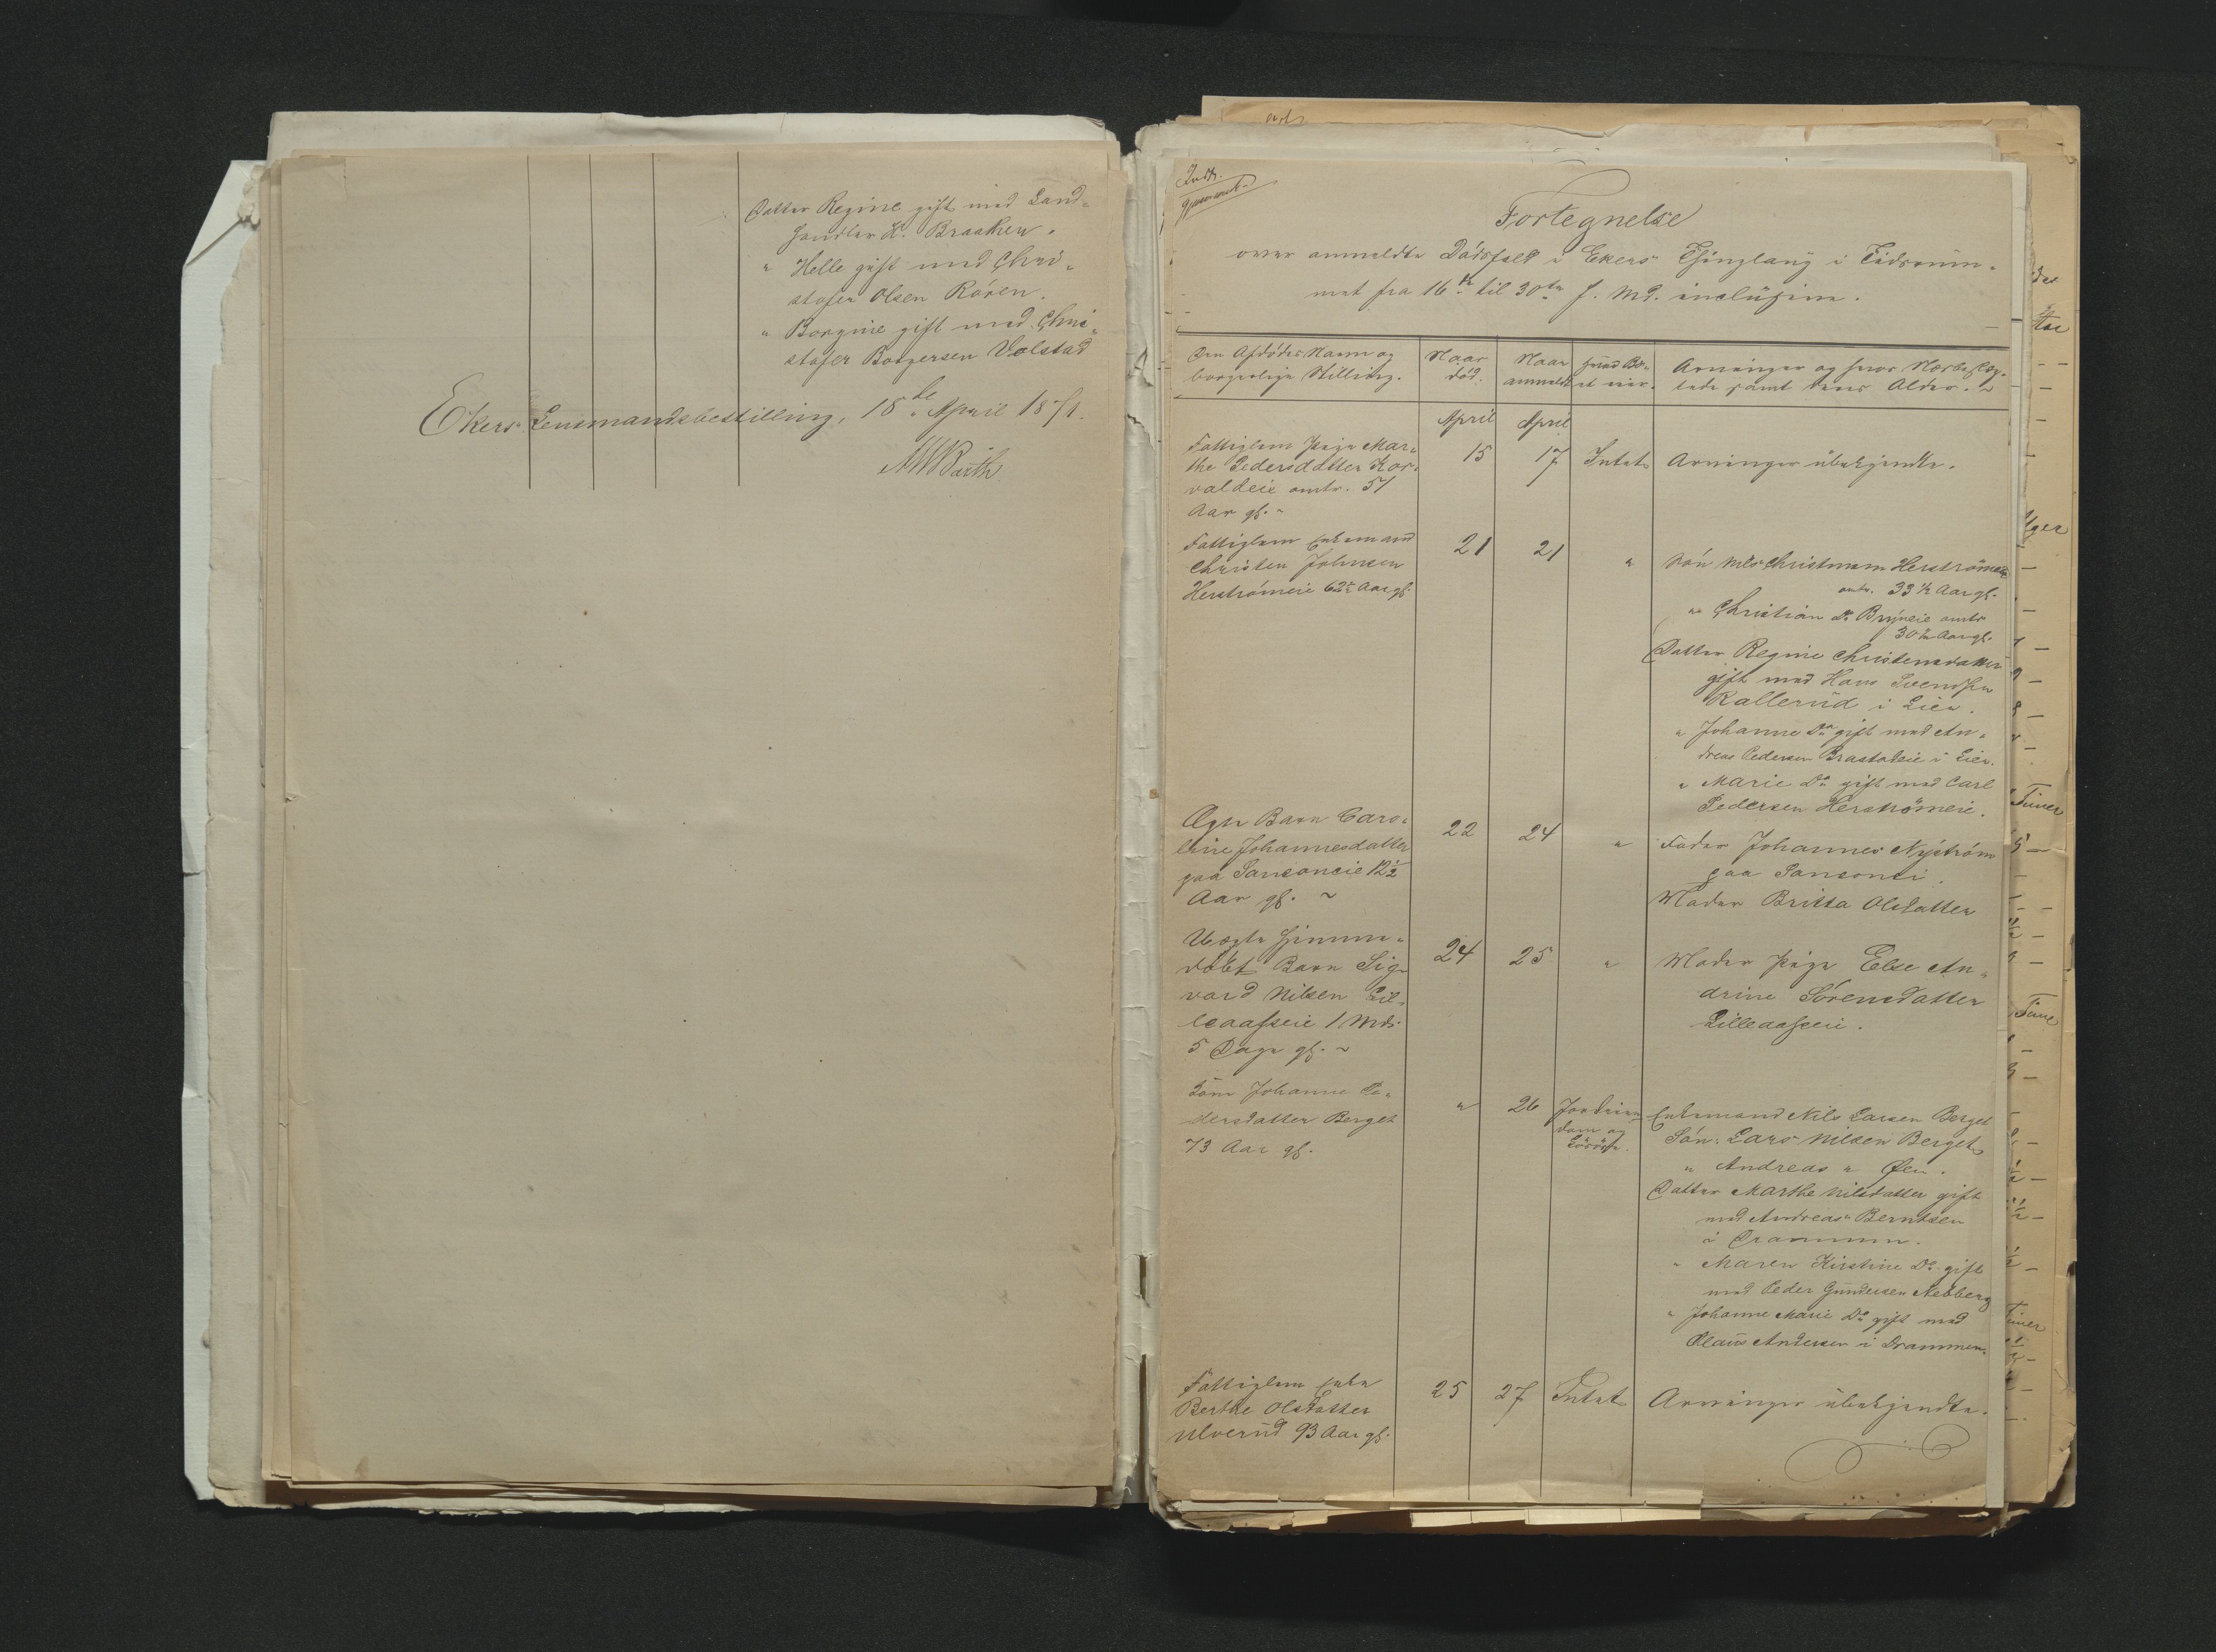 Datter Regine gift med Land-
handler K. Braathen.
" Helle gift med Chri-
stofer Olsen Røren.
" Borgine gift med Chri-
stofer Borgersen Volstad
Ekers Lensmandsbestilling, 18de April 1871.
Fortegnelse
over anmeldte Dødsfald i Ekers Thinglaug i Tidsrum-
met fra 16de til 30te f. Md. inclusive.
Den Afdødes Navn og
borgerlige Stilling.
Naar
død.
Naar
anmeldt
hvad Bo-
et eier.
Arvinger og hvor
samt deres Alder.
April
April
Fattiglem Pige Mar-
the Pedersdatter Kor-
valdeie omtr. 51
Aar gl.
15
17
Intet
Arvinger ubekjendte.
Fattiglem Enkemand
Christen Johnsen
Herstrømeie 62½ Aar gl.
21
21
"
Søn Nils Christensen Herstrømeie
omtr. 33½ Aar gl.
" Christian Do Bryneie omtr
30 Aar gl.
Datter Regine Christensdatter
gift med Hans Svendsen
Kallerud i Lier.
" Johanne Do gift med An-
dreas Pedersen Brastadeie i Lier.
" Marie Do gift med Carl
Pedersen Herstrømeie.
Ægte Barn Caro-
line Johannesdatter
paa Sanconeie 12½
Aar gl.
22
24
"
Fader Johannes Nyström
paa Sanconei
Moder Britta Olsdatter
Uægte hjemme-
døbt Barn Sig-
vard Nilsen Lil-
leaaseie 1 Md.
5 Dage gl.
24
25
"
Moder Pige Else An-
drine Sørensdatter
Lilleaaseie.
Kone Johanne Pe-
dersdatter Berget
73 Aar gl.
"
26
Jordeien-
dom og
Løsøre.
Enkemand Nils Larsen Berget
Søn: Lars Nilsen Berget
" Andreas " Øen.
Datter Marthe Nilsdatter gift
med Andreas Berntsen
i Drammen.
" Maren Kirstine Do gift
med Peder Gundersen Aebberg
" Johanne Marie Do gift med
Olaus Andersen i Drammen.
Fattiglem Enke
Berthe Olsdatter
Ulverud 93 Aar gl.
25
27
Intet
Arvinger ubekjendte.